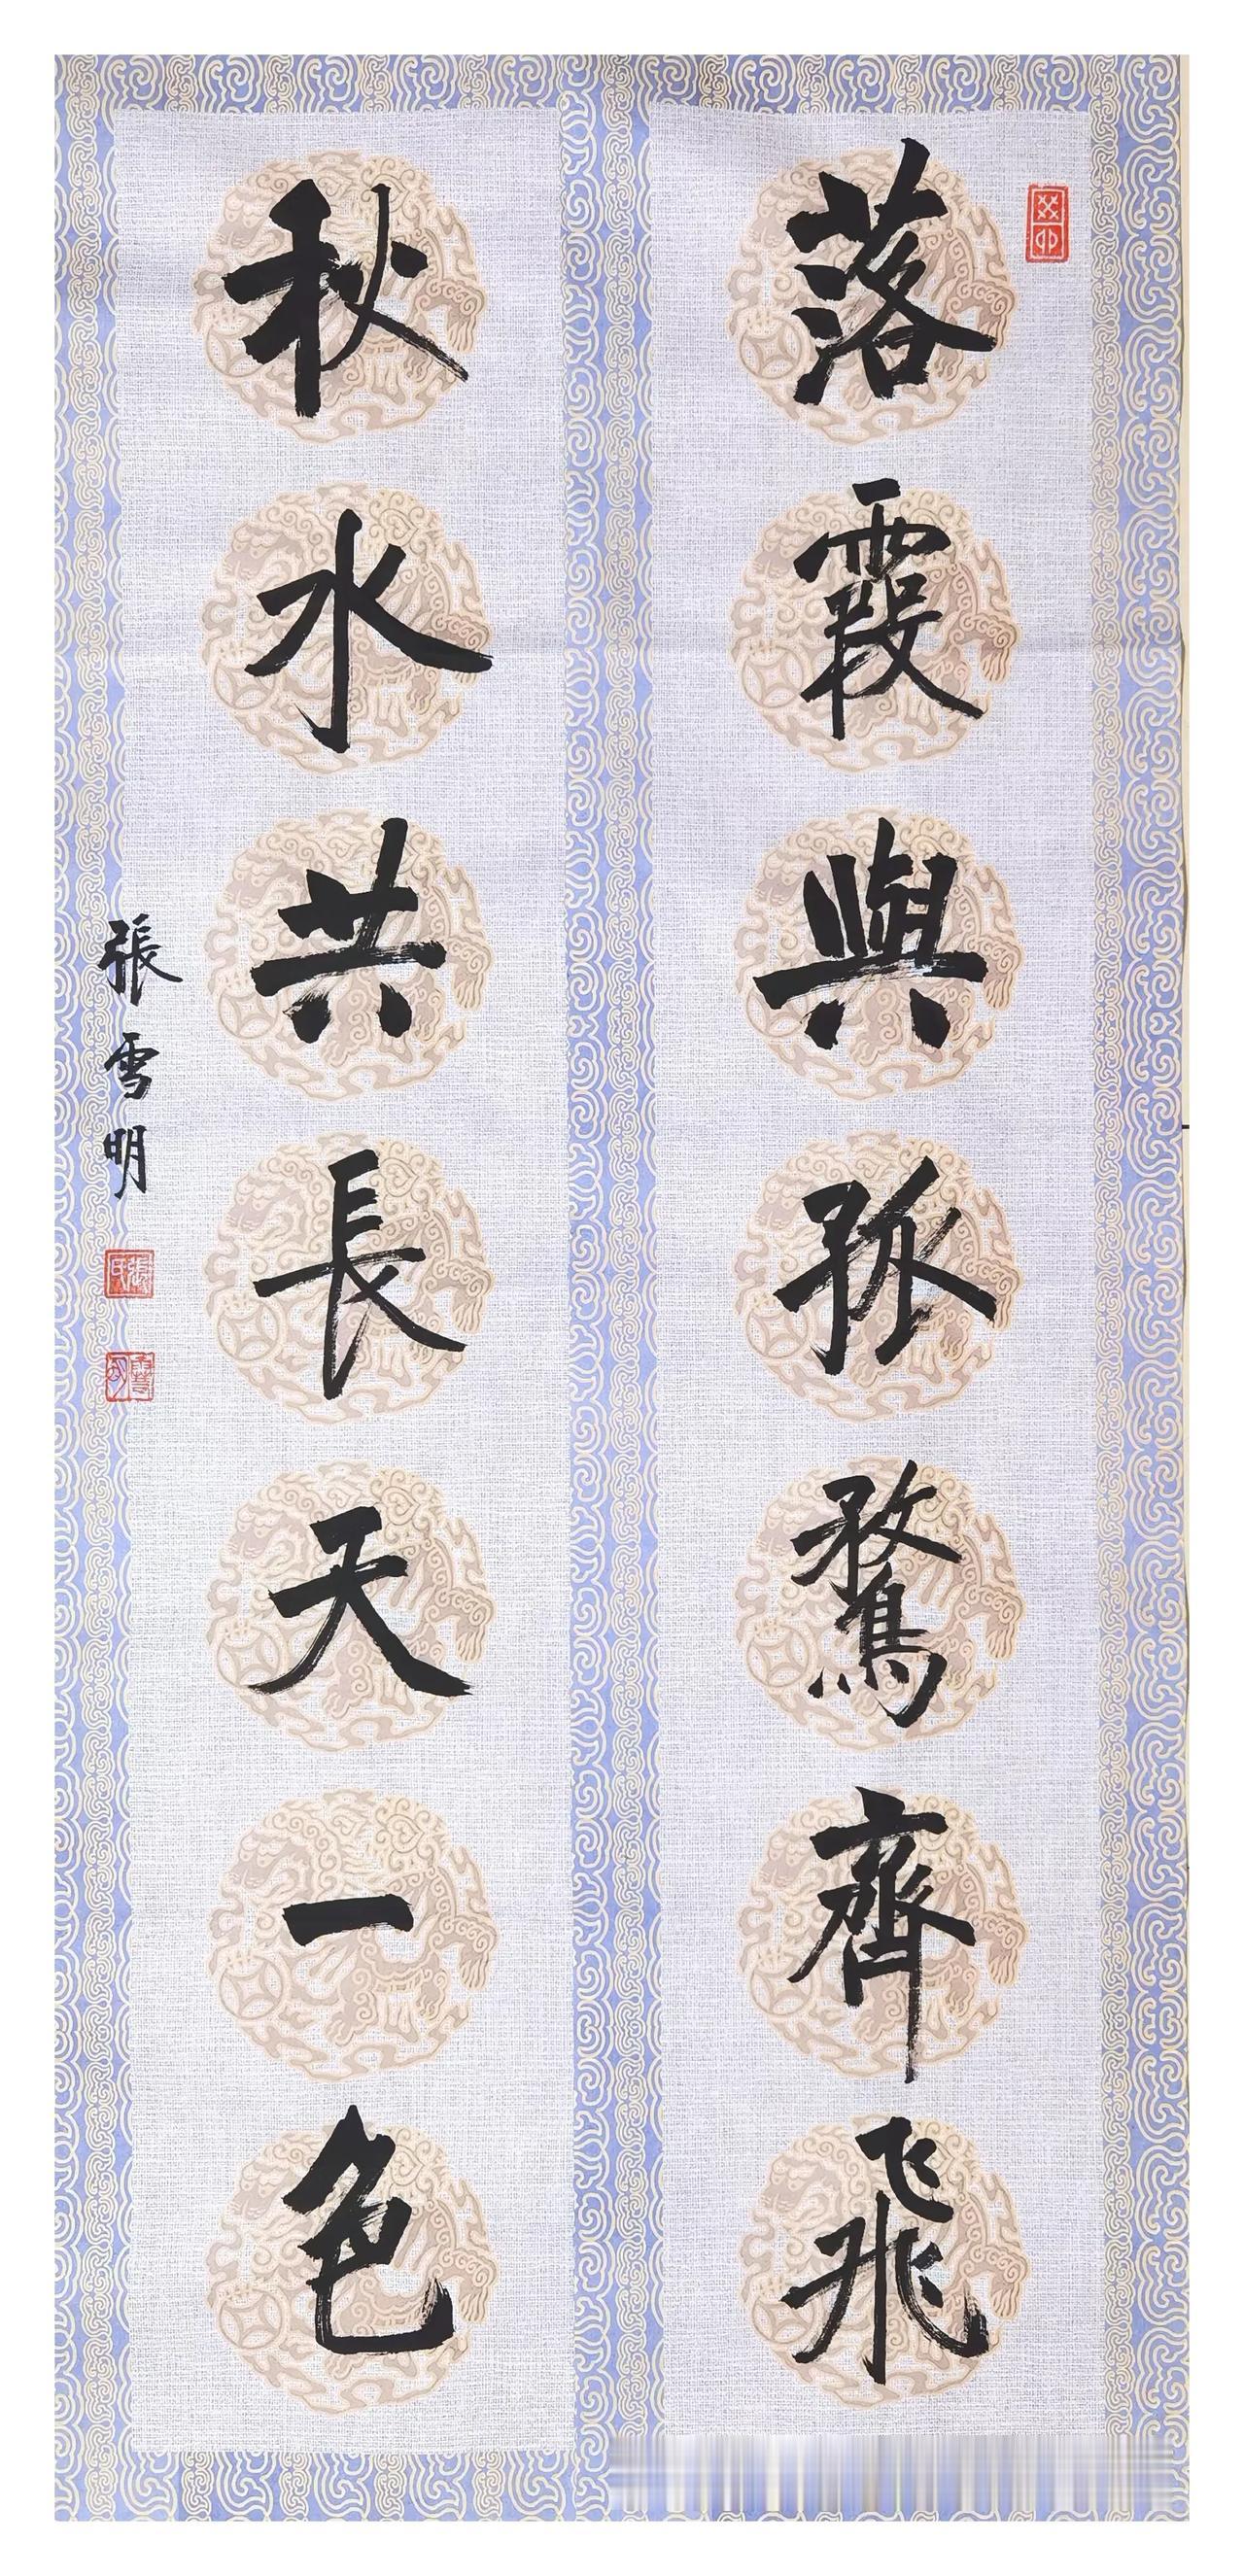 落霞與孤鶩齊飛
秋水共長天一色
張雪明